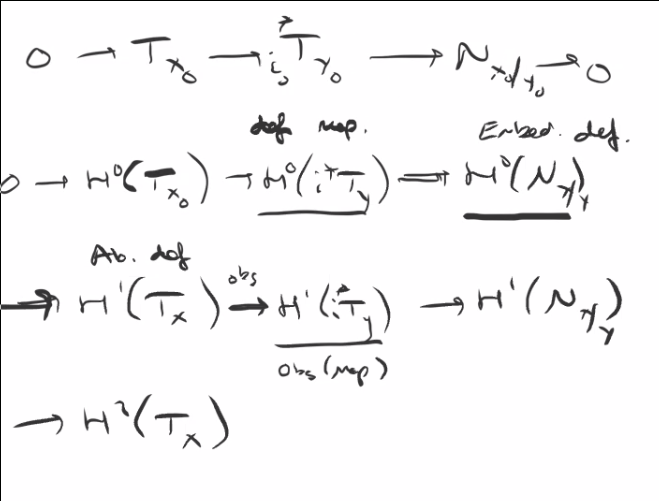 0 → T_{X_0} → i_0^* T_{Y_0} → N_{X_0/Y_0} → 0
def map. Embed. def.
0 → H^0(T_{X_0}) → H^0(i^* T_Y) → H^0(N_{X/Y})
Ab. def obs
→ H^1(T_X) → H^1(i^* T_Y) → H^1(N_{X/Y})
Obs (Map)
→ H^2(T_X)